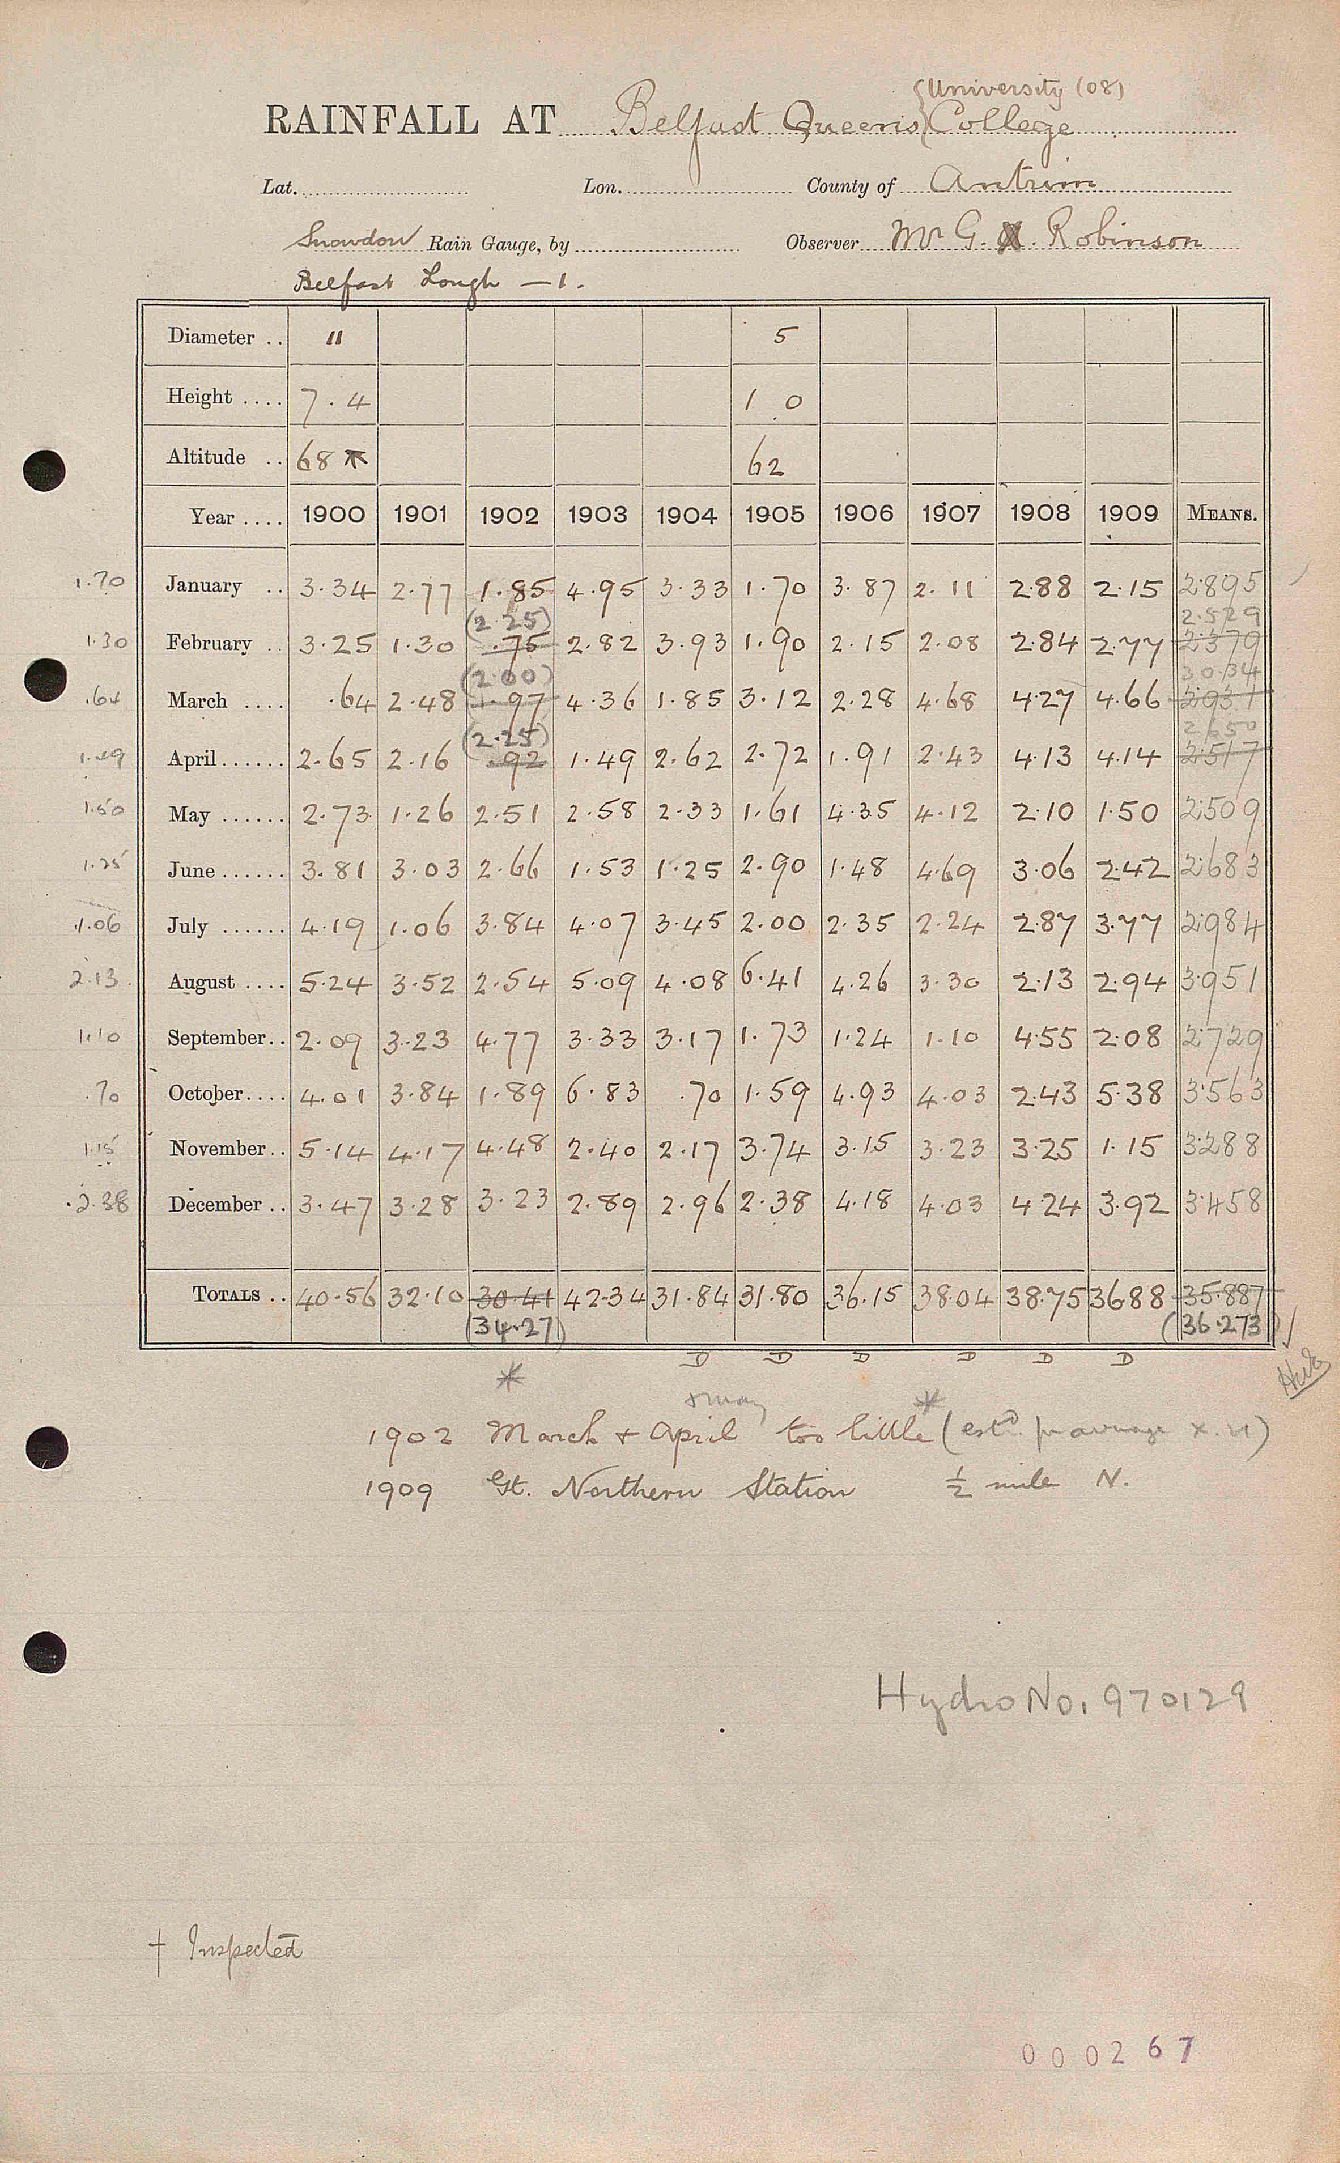 {University (08)
RAINFALL AT Belfast Queens College
Lat. Lon. County of Antrim
Snowdon Rain Gauge, by Observer Mr G. Robinson
Belfast Lough — 1.
Diameter .. 11 5
Height .... 7.4 1 0
Altitude .. 68 62
Year .... 1900 1901 1902 1903 1904 1905 1906 1907 1908 1909 MEANS.
1.70 January .. 3.34 2.77 1.85 4.95 3.33 1.70 3.87 2.11 2.88 2.15 2.895
(2.25) 2.529
1.30 February .. 3.25 1.30 .75 2.82 3.93 1.90 2.15 2.08 2.84 2.77 2.379
(2.00) 3034
.64 March .... .64 2.48 1.97 4.36 1.85 3.12 2.28 4.68 4.27 4.66 2.931
(2.25) 2650
1.49 April ...... 2.65 2.16 .92 1.49 2.62 2.72 1.91 2.43 4.13 4.14 2.517
1.50 May ...... 2.73 1.26 2.51 2.58 2.33 1.61 4.35 4.12 2.10 1.50 2.509
1.25 June ...... 3.81 3.03 2.66 1.53 1.25 2.90 1.48 4.69 3.06 2.42 2.683
1.06 July ...... 4.19 1.06 3.84 4.07 3.45 2.00 2.35 2.24 2.87 3.77 2.984
2.13 August .... 5.24 3.52 2.54 5.09 4.08 6.41 4.26 3.30 2.13 2.94 3.951
1.10 September.. 2.09 3.23 4.77 3.33 3.17 1.73 1.24 1.10 4.55 2.08 2.729
.70 October.... 4.01 3.84 1.89 6.83 .70 1.59 4.93 4.03 2.43 5.38 3.563
1.15 November.. 5.14 4.17 4.48 2.40 2.17 3.74 3.15 3.23 3.25 1.15 3.288
2.38 December .. 3.47 3.28 3.23 2.89 2.96 2.38 4.18 4.03 4.24 3.92 3.458
TOTALS .. 40.56 32.10 30.41 42.34 31.84 31.80 36.15 38.04 38.75 36.88 35.887
(34.27) (36.273)
D D D D D D
*
& may *
1902 March & April too little (estd. average
1909 Gt. Northern Station ½ mile N.
Hydro No. 970129
† Inspected
000267